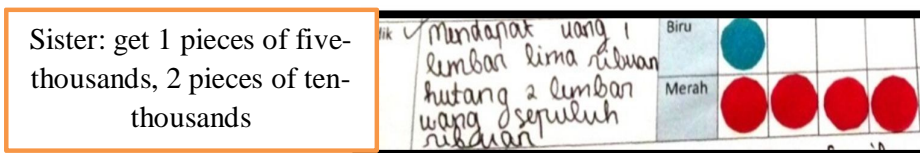 Sister: get 1 pieces of five-
thousands, 2 pieces of ten-
thousands
ik
Mendapat uang 1
lembar lima ribuan
hutang 2 lembar
uang sepuluh
ribuan
Biru
Merah